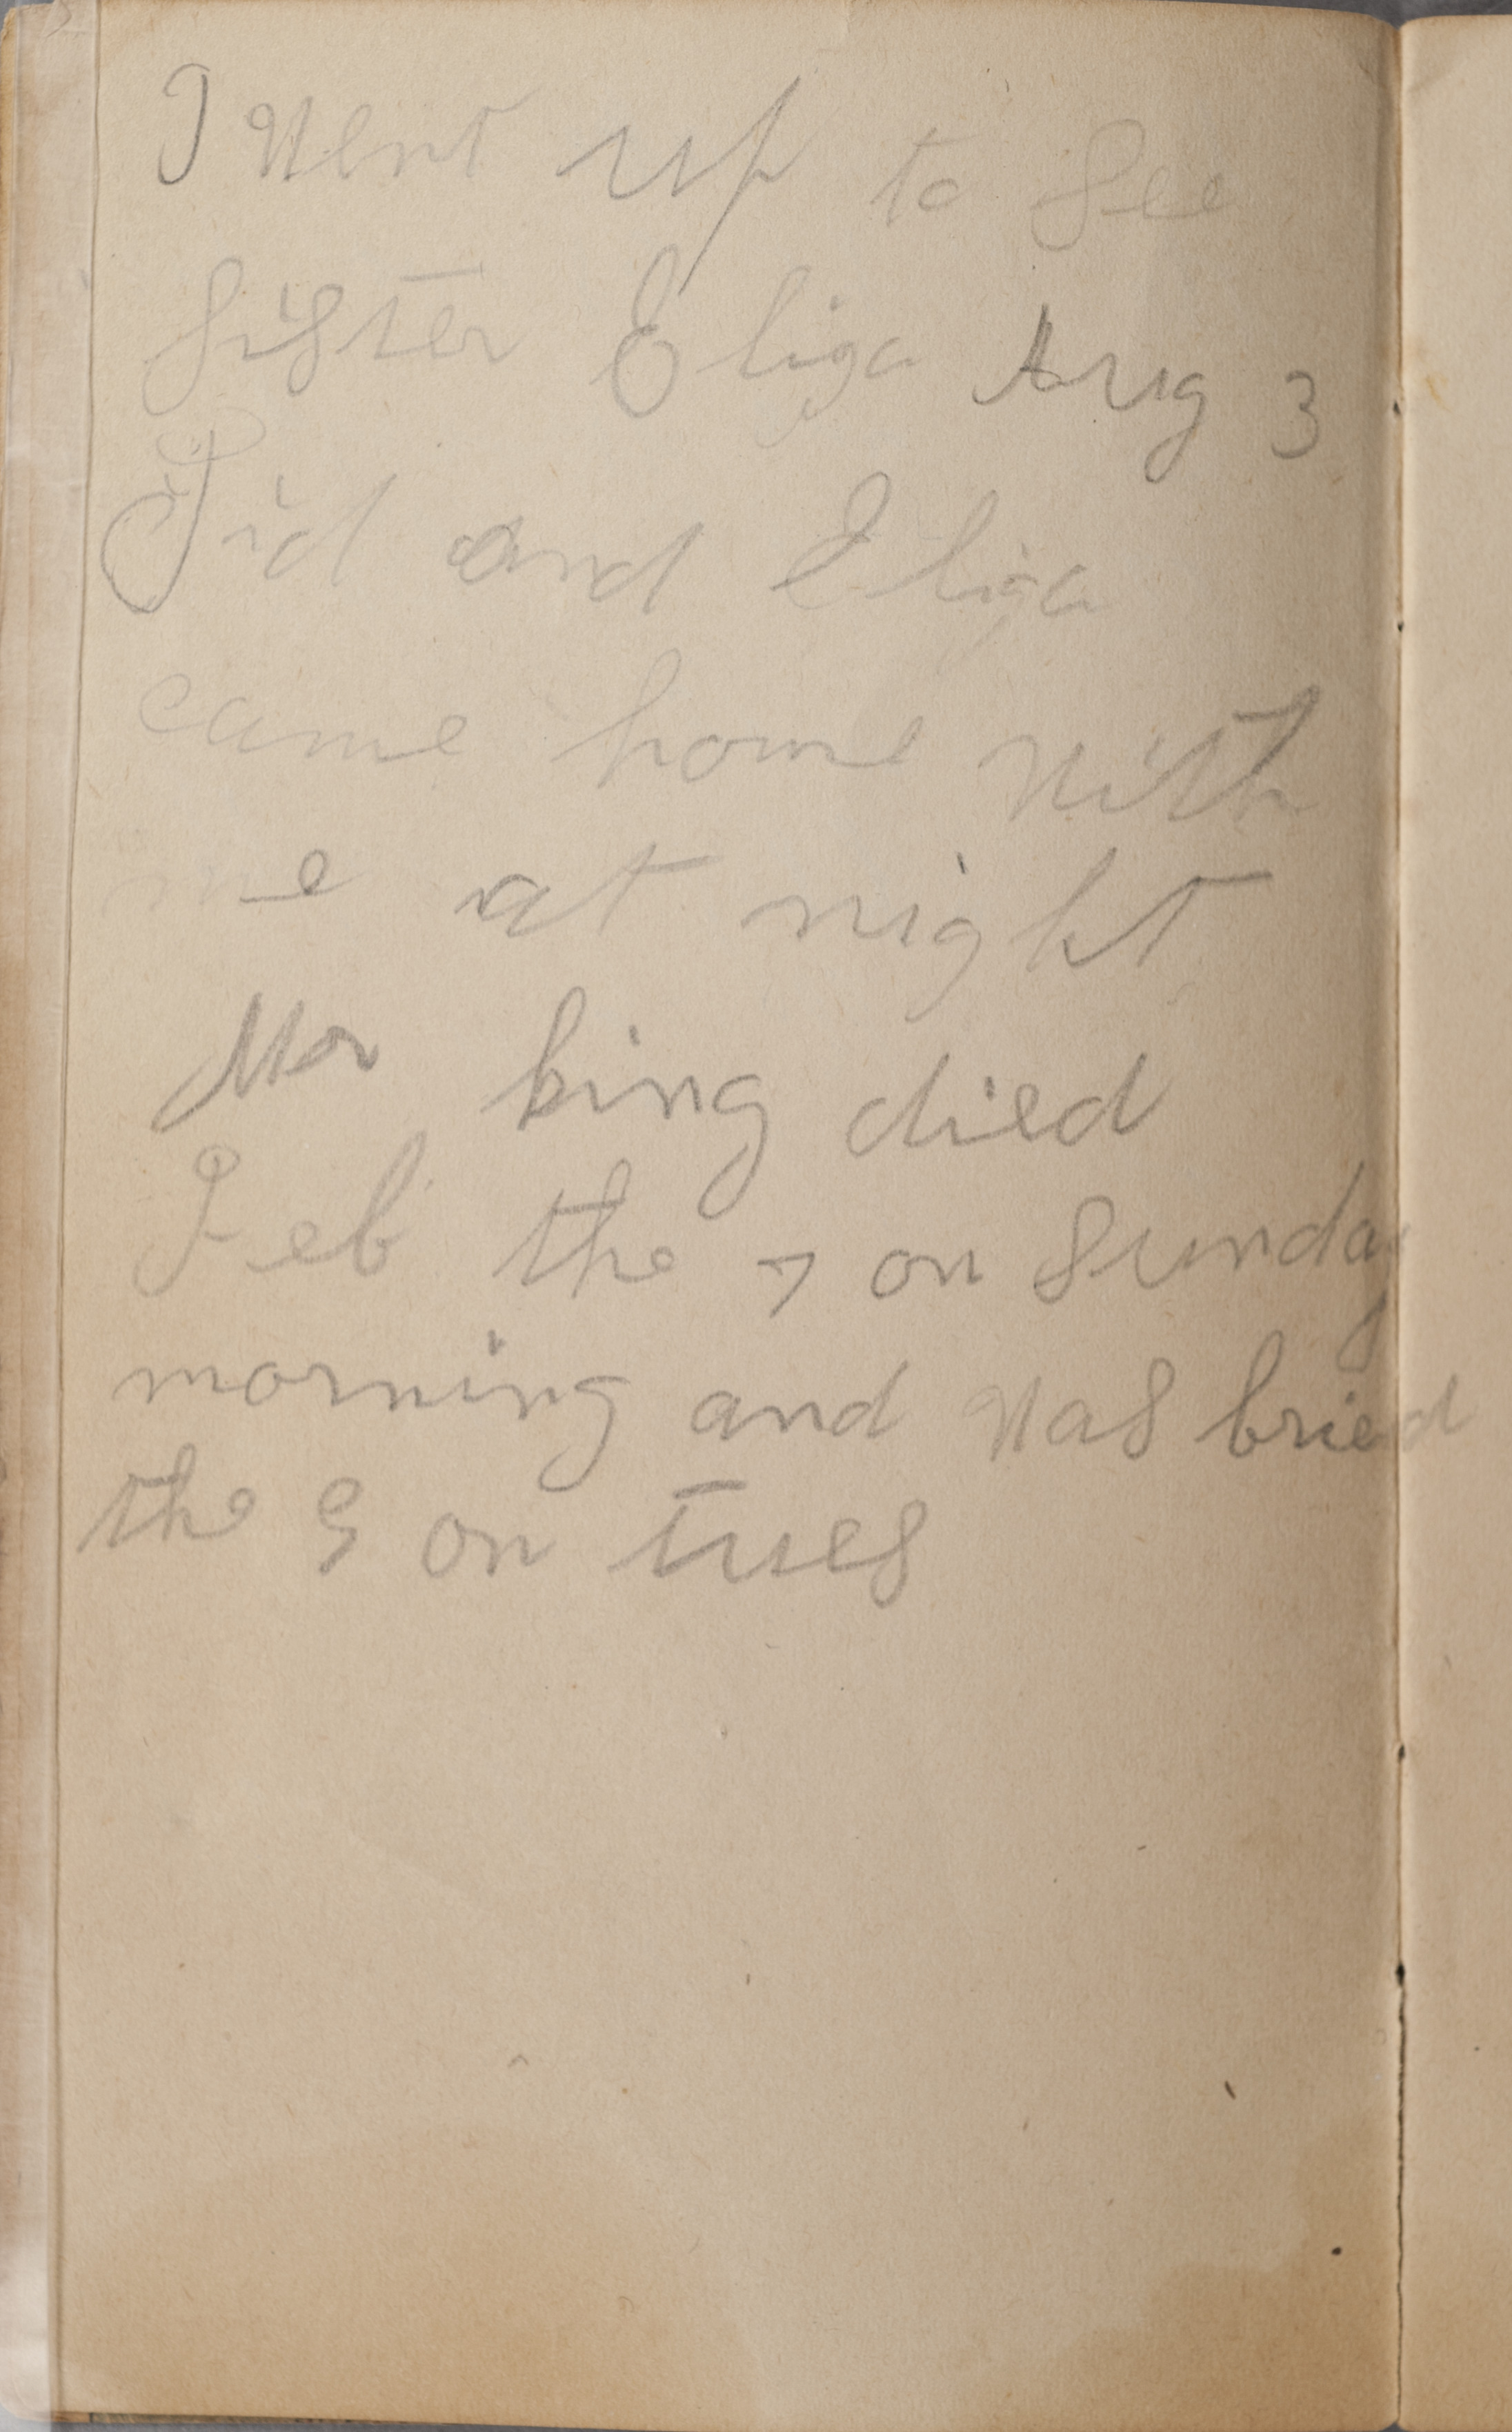 I went up to See
Sister Eliza Aug 3
Sid and Eliza
came home with
me at night
Mr king died
Feb the 7 on Sunday
morning and was bried
the 9 on tues